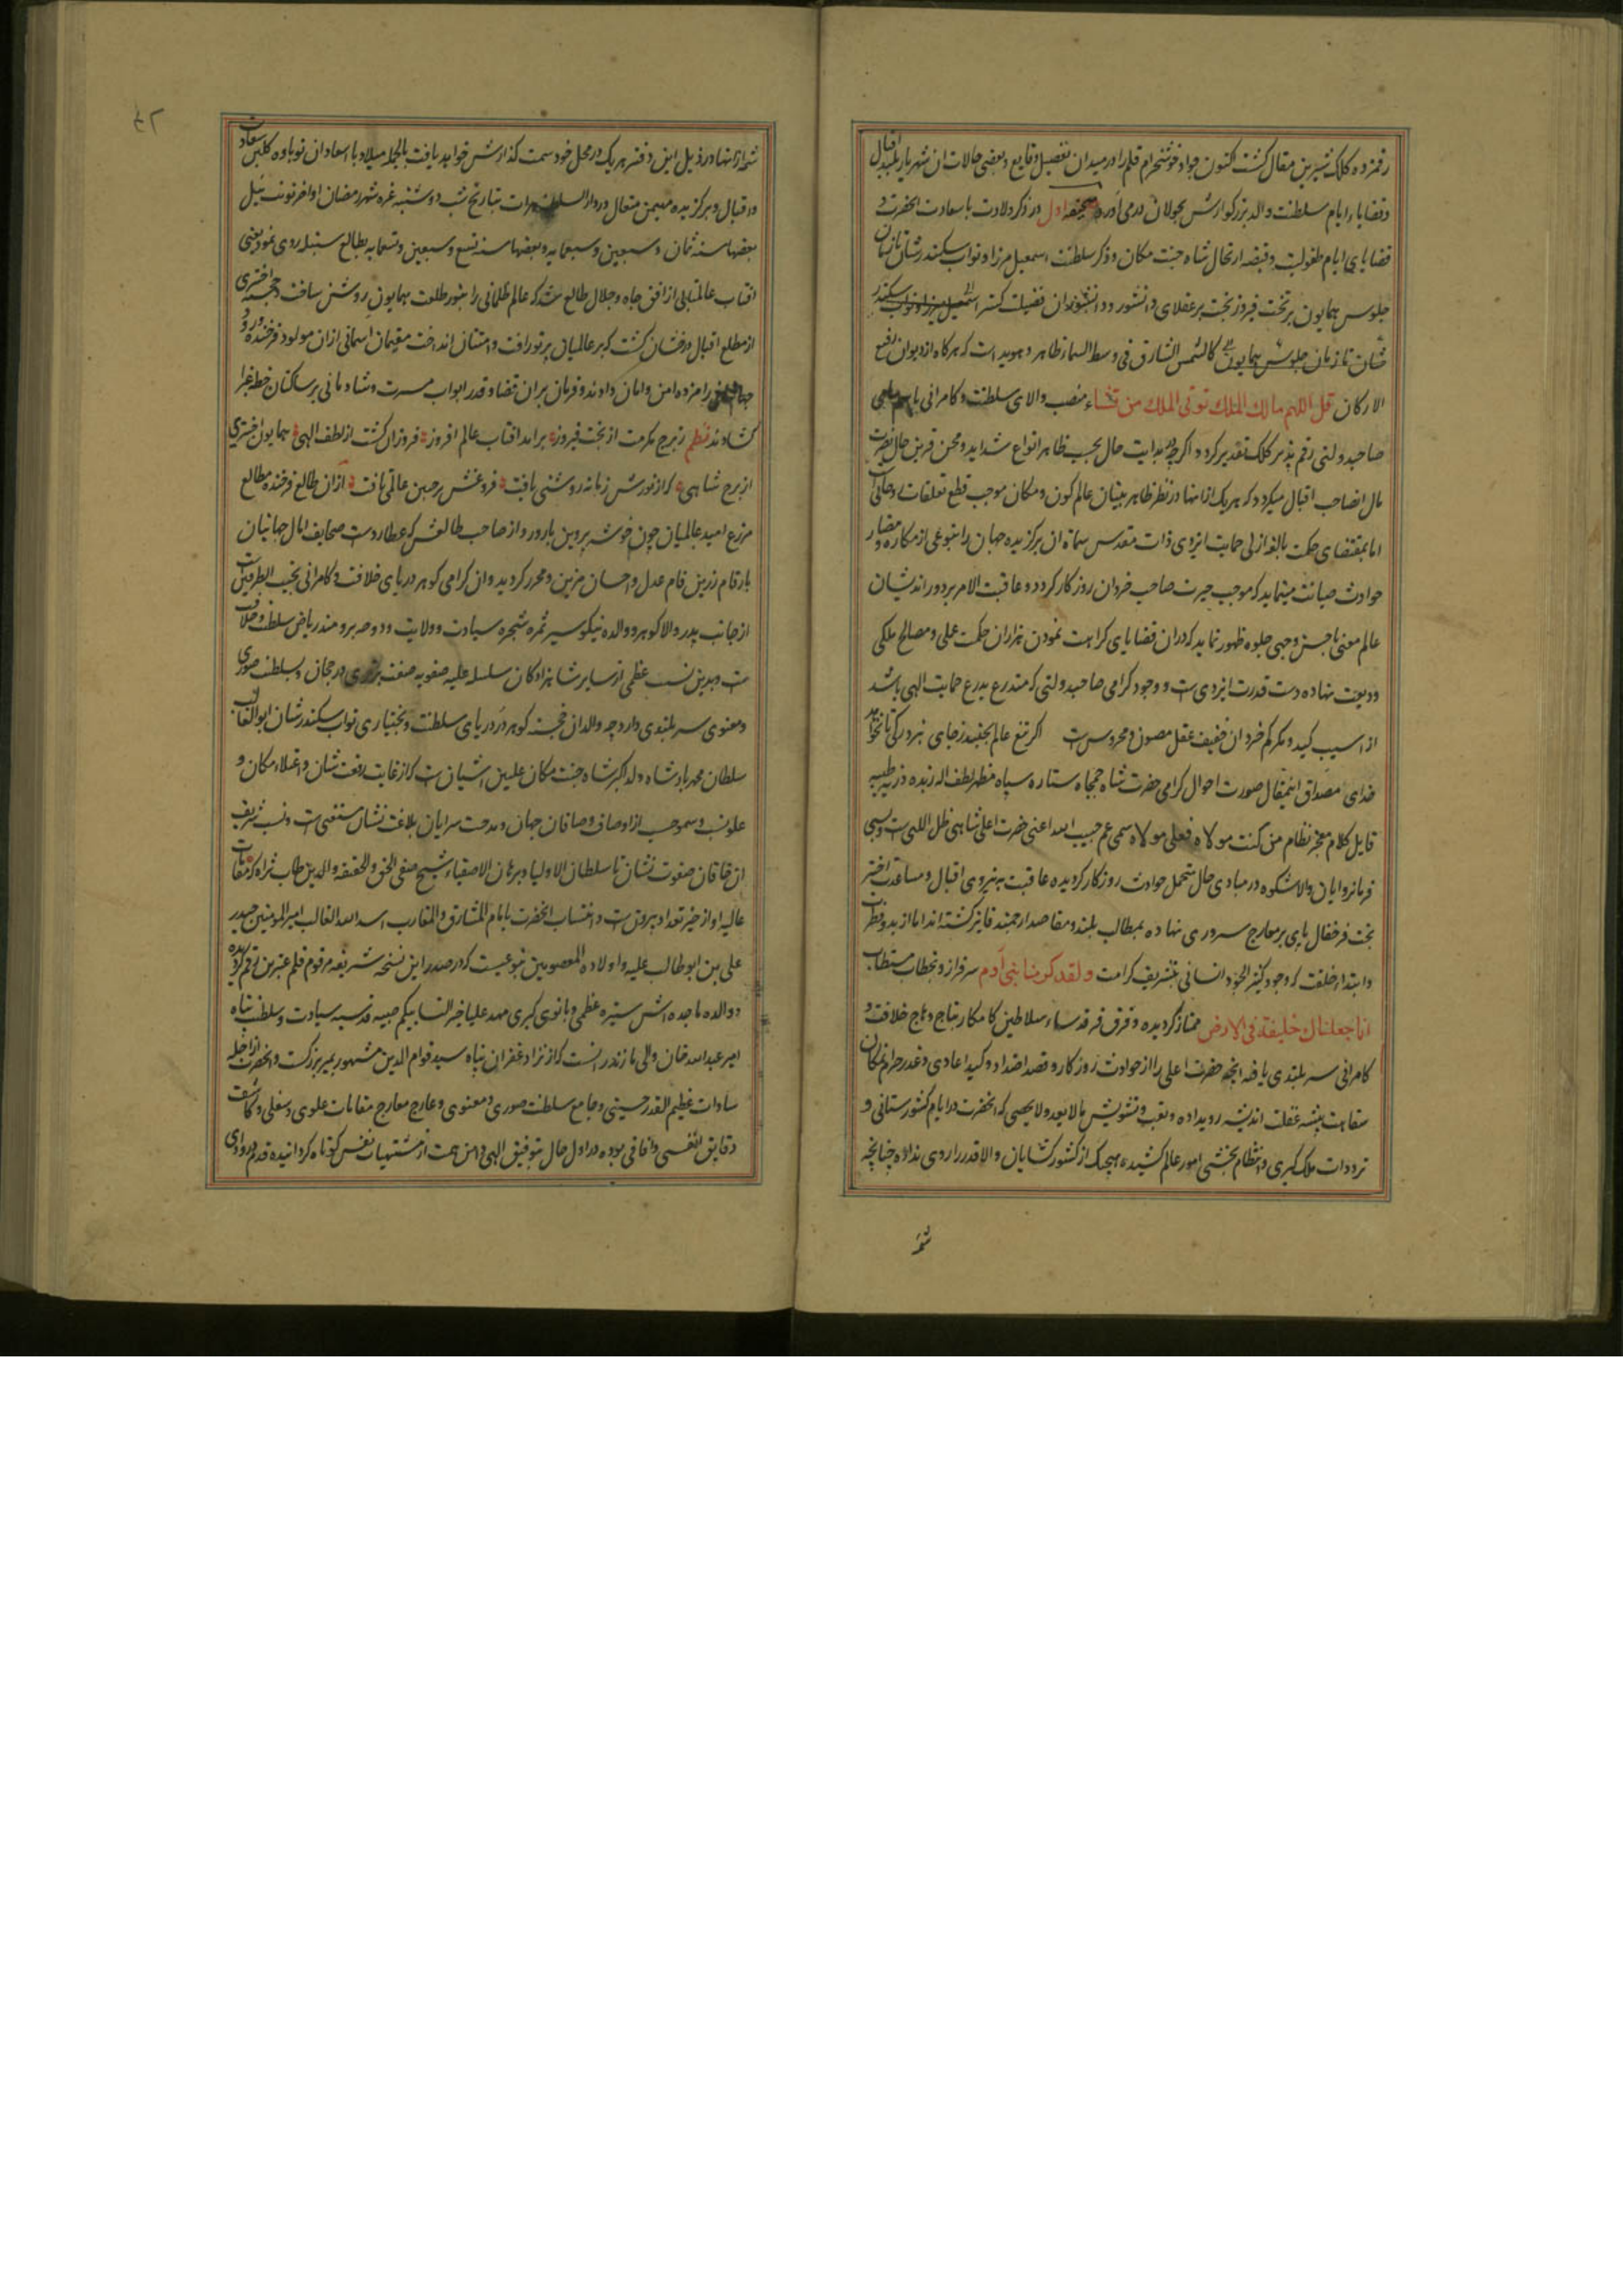 رقمزده کلک شیرین مقال کشت اکنون جواد خوشخرام قلم را در میدان تفصیل وقایع و بعضی حالات ان شهریار بلند اقبال
و قضایاء ایام سلطنت والد بزرکوارش بجولان درمی آورد صحیفه اول در ذکر ولادت با سعادت انحضرت و
قضایای ایام طفولیت و قضیه ارتحال شاه جنت مکان و ذکر سلطنت اسمعیل میرزا و نواب سکندرشان تا زمان
جلوس همایون بر تخت فیروز بخت بر عقلای دانشور و دانشوران فضیلت کستر اسمعیل میرزا و نواب سکندر
شان تا زمان جلوس همایون کالشمس الشارق فی وسط السما ظاهر و هویداست که هرکاه از دیوان رفیع
الارکان قل اللهم مالک الملک توتی الملک من تشاء منصب والای سلطنت و کامرانی باسم سامی
صاحبدولتی رقم پذیر کلک تقدیر کردد اکرچه در بدایت حال بحسب ظاهر انواع شداید و محن قرین حال
مال انصاحب اقبال میکردد که هریک ازانها در نظر ظاهر بینان عالم کون و مکان موجب قطع تعلقات
اما بمقتضای حکمت بالغه ازلی حمایت ایزدی ذات مقدس سماة ان برکزیده جهان را بنوعی از مکاره و مضار
حوادث صیانت مینماید که موجب حیرت صاحب خردان روزکار کردد و عاقبت الامر بر دوراندیشان
عالم معنی باحسن وجهی جلوه ظهور نماید که دران قضایای کراهت نمودن هزاران حکمت عملی و مصالح ملکی
ودیعت نهاده دست قدرت ایزدی ست و وجود کرامی صاحبدولتی که متدرع بدرع حمایت الهی باشد
از اسیب کید و مکر کم خردان خفیف عقل مصون و محروس ست اکر تیغ عالم بجنبد زجای نبرد رکی تا نخواهد
خدای مصداق اینمقال صورت احوال کرامی حضرت شاه جمجاه ستاره سپاه مظهر لطف اله زبده ذریه طیبه
قایل کلام معجز نظام من کنت مولاه فعلی مولاه سمی عم حبیب الله اعنی حضرت اعلی شاهی ظل اللهی ست
فرمانروایان والاشکوه در مبادی حال متحمل حوادث روزکار کردیده عاقبت به نیروی اقبال و مساعدت اختر
بخت فرخفال پای بر معارج سروری نهاده بمطالب بلند و مقاصد ارجمند فایز کشته اند اما از بدو فطرت
و ابتداء خلقت که وجود کثیر الجود انسانی بتشریف کرامت و لقد کرمنا بنی آدم سرفراز و بخطاب مستطاب
انا جعلناک خلیفة فی الارض ممتاز کردیده و فرق فرقدساء سلاطین کامکار بتاج و هاج خلافت و
کامرانی سربلندی یافته انچه حضرت اعلی را از حوادث روزکار و قصد اضداد و کید اعادی و غدر حرام نمکان
سفاهت پیشه غفلت اندیشه رویداده و تعب و تشویش بلایعد و لایحصی که انحضرت در ایام کشورستانی و
ترددات ملک کیری و انتظام بخشی امور عالم کشیده هیچیک از کشورکشایان والاقدر را روی نداده چنانچه
شمه
شمه ازانها در ذیل این دفتر هریک در محل خود سمت کذارش خواهد یافت بالجمله میلاد با اسعاد ان نوباوه کلبن سعادت
و اقبال و برکزیده مهیمن متعال در دار السلطنه هرات بتاریخ شب دوشنبه غره شهر رمضان اواخر توشقان ییل
بعضها سنه ثمان و سبعین و تسعمایه و بعضها سنه تسع و سبعین و تسعمایه بطالع سنبله روی نمود یعنی
افتاب عالمتابی از افق جاه و جلال طالع شد که عالم ظلمانی را بنور طلعت همایون روشن ساخت و خجسته اختری
از مطلع اقبال درخشان کشت که بر عالمیان پرتو رافت و امتنان انداخت مقیمان اسمانی ازان مولود فرخنده ورود
جهانیان را مژده امن و امان دادند و فرمان بران قضا و قدر ابواب مسرت و شادمانی بر ساکنان خطه غبرا
کشادند نظم ز برج مکرمت از بخت فیروز برامد افتاب عالم افروز فروزان کشت از لطف الهی همایون اختری
از برج شاهی که از نورش زمانه روشنی یافت فروغش بر جبین عالمی تافت ازان طالع فرخنده مطالع
مزرع امید عالمیان چون خوشه پروین بارور و از صاحب طالعش که عطاردست صحایف امال جهانیان
بارقام زرین فام عدل و احسان مزین و محرر کردید و ان کرامی کوهر دریای خلافت و کامرانی نجیب الطرفین
از جانب پدر والاکوهر و والده نیکوسیر ثمره شجره سیادت و ولایت و دوحه برومند ریاض سلطنت و خلافت
ست و بدین نسب عظمی از سایر شاهزادکان سلسله علیه صفویه صفت برتری و رجحان و بسلطنت صوری
و معنوی سربلندی دارد چه والد ان خجسته کوهر دریای سلطنت و بختیاری نواب سکندرشان ابوالغازی
سلطان محمد پادشاه ولد اکبر شاه جنت مکان علیین اشیان ست که از غایت رفعت شان و اعتلاء مکان و
علو نسب و سمو حسب از اوصاف وصافان جهان و مدحت سرایان بلاغت نشان مستغنی ست و نسب شریف
ان خاقان صفوت نشان تا سلطان الاولیا و برهان الاصفیاء شیخ صفی الحق و الحقیقه و الدین طاب ثراه که مقامات
عالیه او از حیز تعداد بیرونست و انتساب انحضرت بامام المشارق و المغارب اسد الله الغالب امیر المومنین حیدر
علی بن ابوطالب علیه و اولاده المعصومین بنوعیست که در صدر این نسخه شریفه مرقوم قلم عنبرین رقم کردیده
و والده ماجده اش ستیره عظمی و بانوی کبری مهد علیا خیر النسا بیکم صبیه قدسیه سیادت و سلطنت پناه
امیر عبدالله خان والی مازندرانست که از نژاد غفران پناه سید قوام الدین مشهور بمیر بزرکست و انحضرت از اجله
سادات عظیم القدر حسینی و جامع سلطنت صوری و معنوی و عارج معارج مقامات علوی و سفلی و کاشف
دقایق انفسی و افاقی بوده در اول حال بتوفیق الهی دامن همت از مشتهیات نفس کوتاه کردانیده قدم در وادی